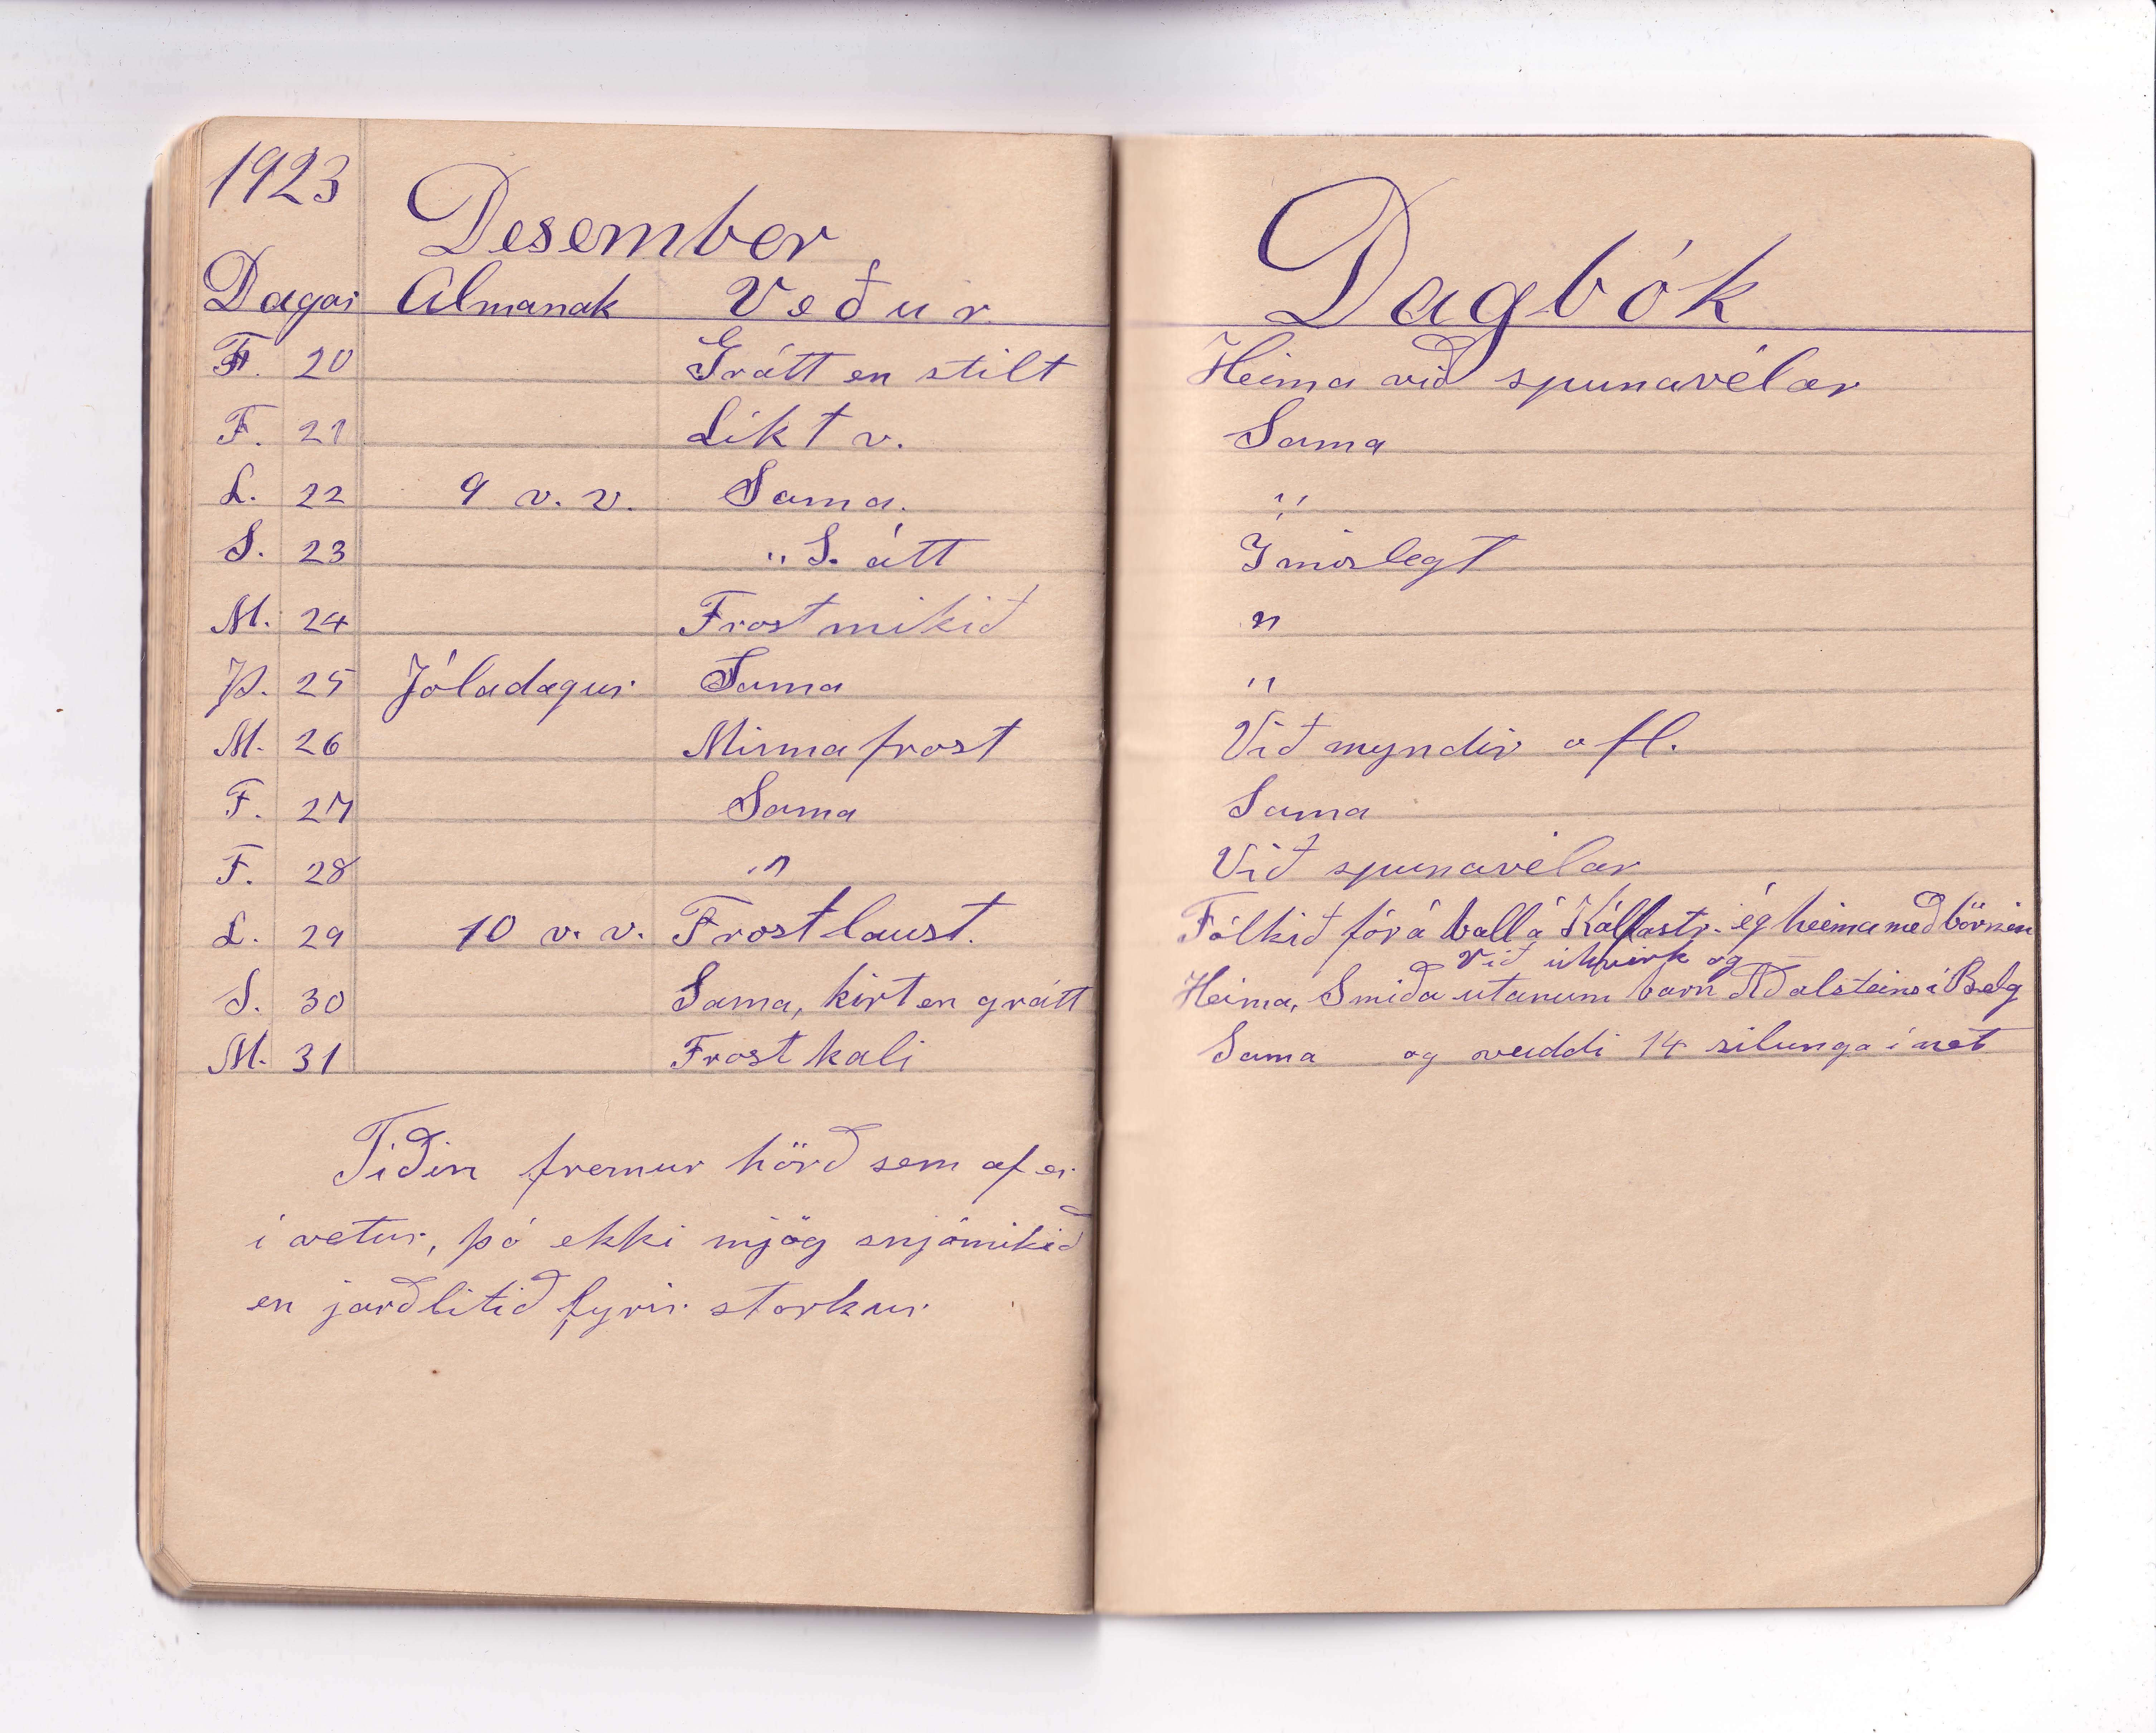 1923
Desember
Dagar Almanak Veður
F. 20 Grátt en stilt
F. 21 Líkt v.
L. 22 9 v. v. Sama.
S. 23 " S. átt
M. 24 Frost mikið
Þ. 25 Jóladagur Sama
M. 26 Minna frost
F. 27 Sama
F. 28 "
L. 29 10 v. v. Frostlaust.
S. 30 Sama, kirt en grátt
M. 31 Frost kali
Tiðin fremur hörð sem af er
í vetur, þó ekki mjög snjómikið
en jarðlitið fyrir storkur
Dagbók
Heima við spunavélar
Sama
"
Ímislegt
"
"
Við myndir o fl.
Sama
Við spunavélar
Fólkið fór á ball á Kálfastr. ég heima með börnin
Við og
Heima, Smiða utanum barn Aðalsteins í Belg
Sama og veiddi 14 silunga í net